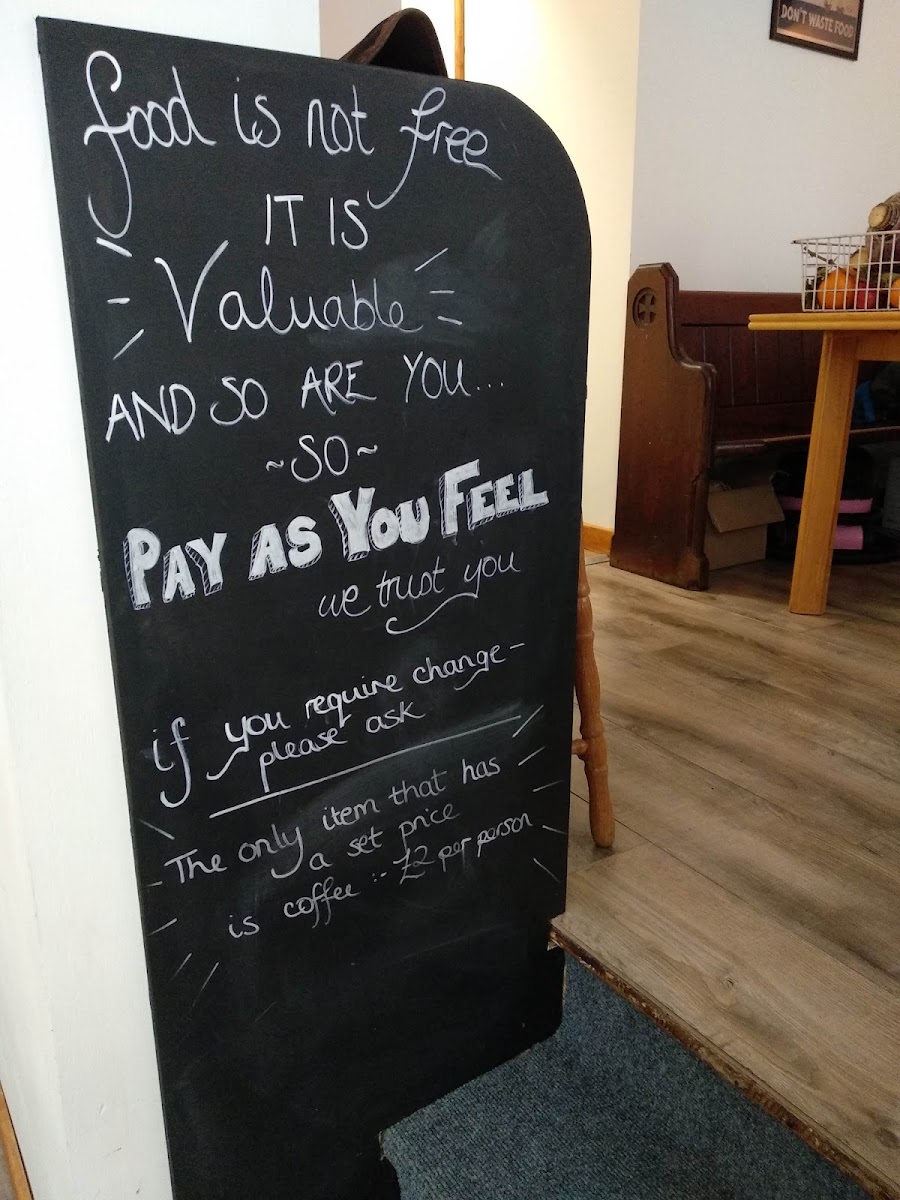 DON'T WASTE FOOD
food is not free
IT IS
Valuable
AND SO ARE YOU...
~SO~
PAY AS YOU FEEL
we trust you
if you require change -
please ask
The only item that has
a set price
is coffee :- £2 per person